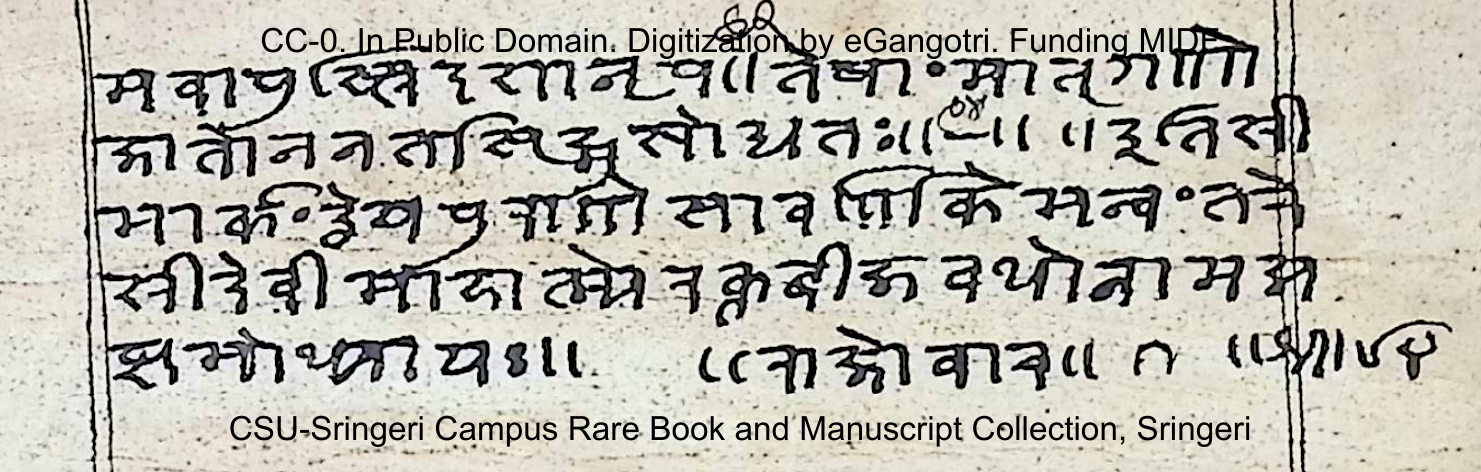 ६२
CC-0. In Public Domain. Digitization by eGangotri. Funding MIDF
मवापुस्त्रिदशानृप॥तेषांमातृगणो
जातोननर्तासृङ्मदोद्धतः॥६४॥ ॥इतिस्री
मार्कंडेयपुराणे सावर्णिके मन्वंतरे
स्रीदेवीमाहात्म्ये रक्तबीजवधोनामअ
ष्टमोध्यायः॥ ॥राजोवाच॥
CSU-Sringeri Campus Rare Book and Manuscript Collection, Sringeri